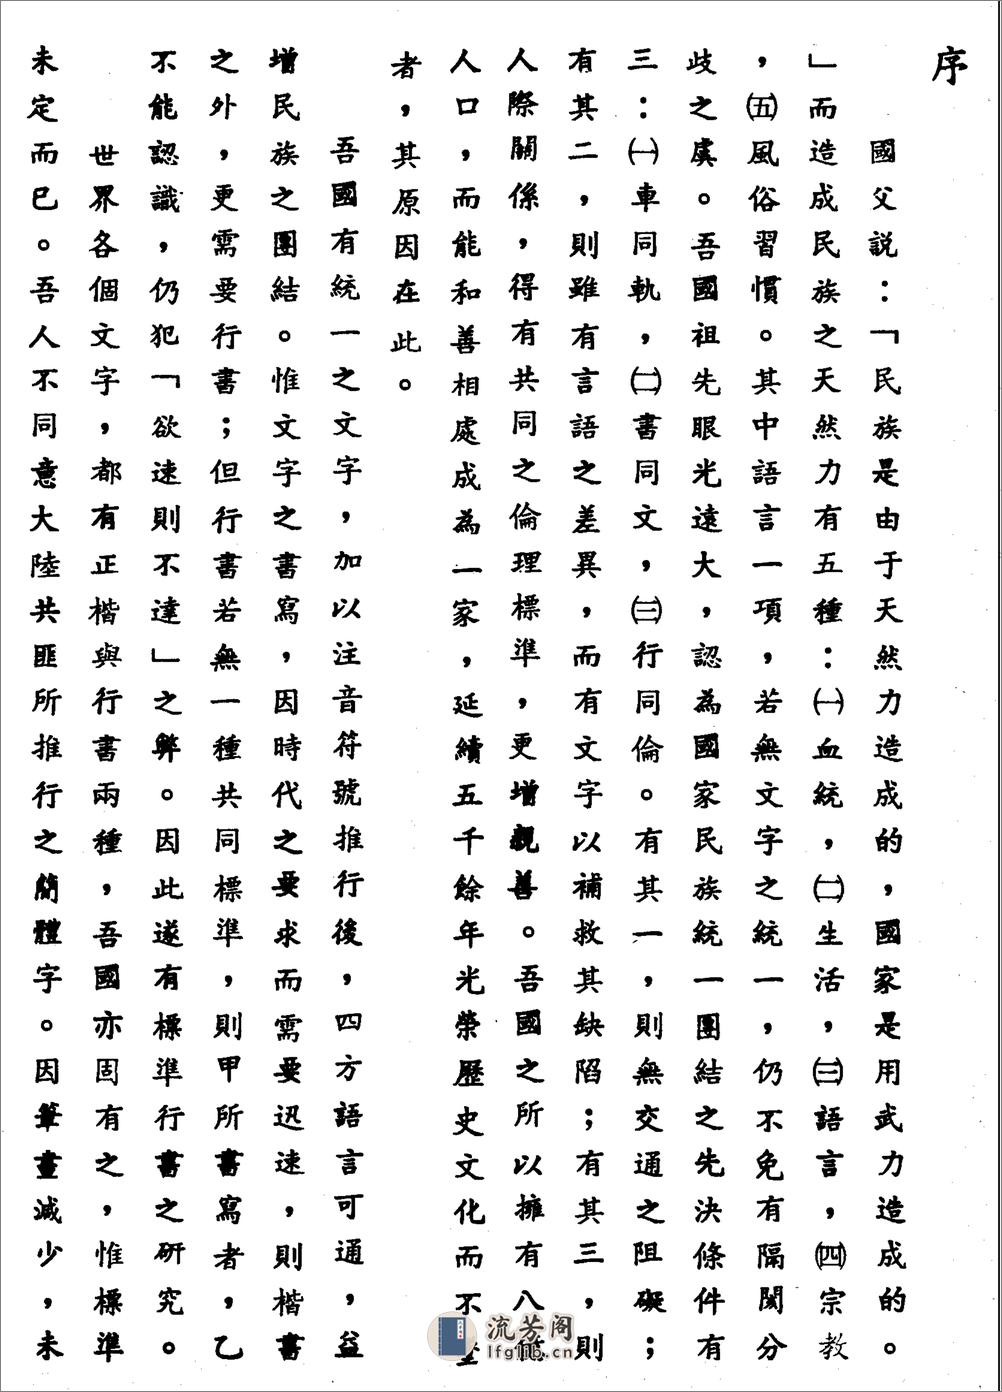 序
國父説：「民族是由于天然力造成的，國家是用武力造成的。
」而造成民族之天然力有五種：㈠血統，㈡生活，㈢語言，㈣宗教
，㈤風俗習慣。其中語言一項，若無文字之統一，仍不免有隔閡分
歧之虞。吾國祖先眼光遠大，認為國家民族統一團結之先決條件有
三：㈠車同軌，㈡書同文，㈢行同倫。有其一，則無交通之阻礙；
有其二，則雖有言語之差異，而有文字以補救其缺陷；有其三，則
人際關係，得有共同之倫理標準，更增親善。吾國之所以擁有八
人口，而能和善相處成為一家，延續五千餘年光榮歷史文化而不
者，其原因在此。
吾國有統一之文字，加以注音符號推行後，四方語言可通，益
增民族之團結。惟文字之書寫，因時代之要求而需要迅速，則楷書
之外，更需要行書；但行書若無一種共同標準，則甲所書寫者，乙
不能認識，仍犯「欲速則不達」之弊。因此遂有標準行書之研究。
世界各個文字，都有正楷與行書兩種，吾國亦固有之，惟標準
未定而已。吾人不同意大陸共匪所推行之簡體字。因筆畫減少，未
流芳阁
lfglib.cn